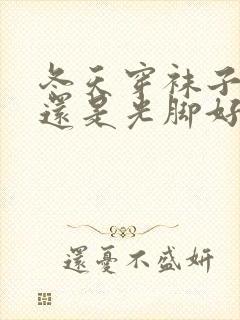 冬天穿袜子
還是光脚好
還憂不盛妍